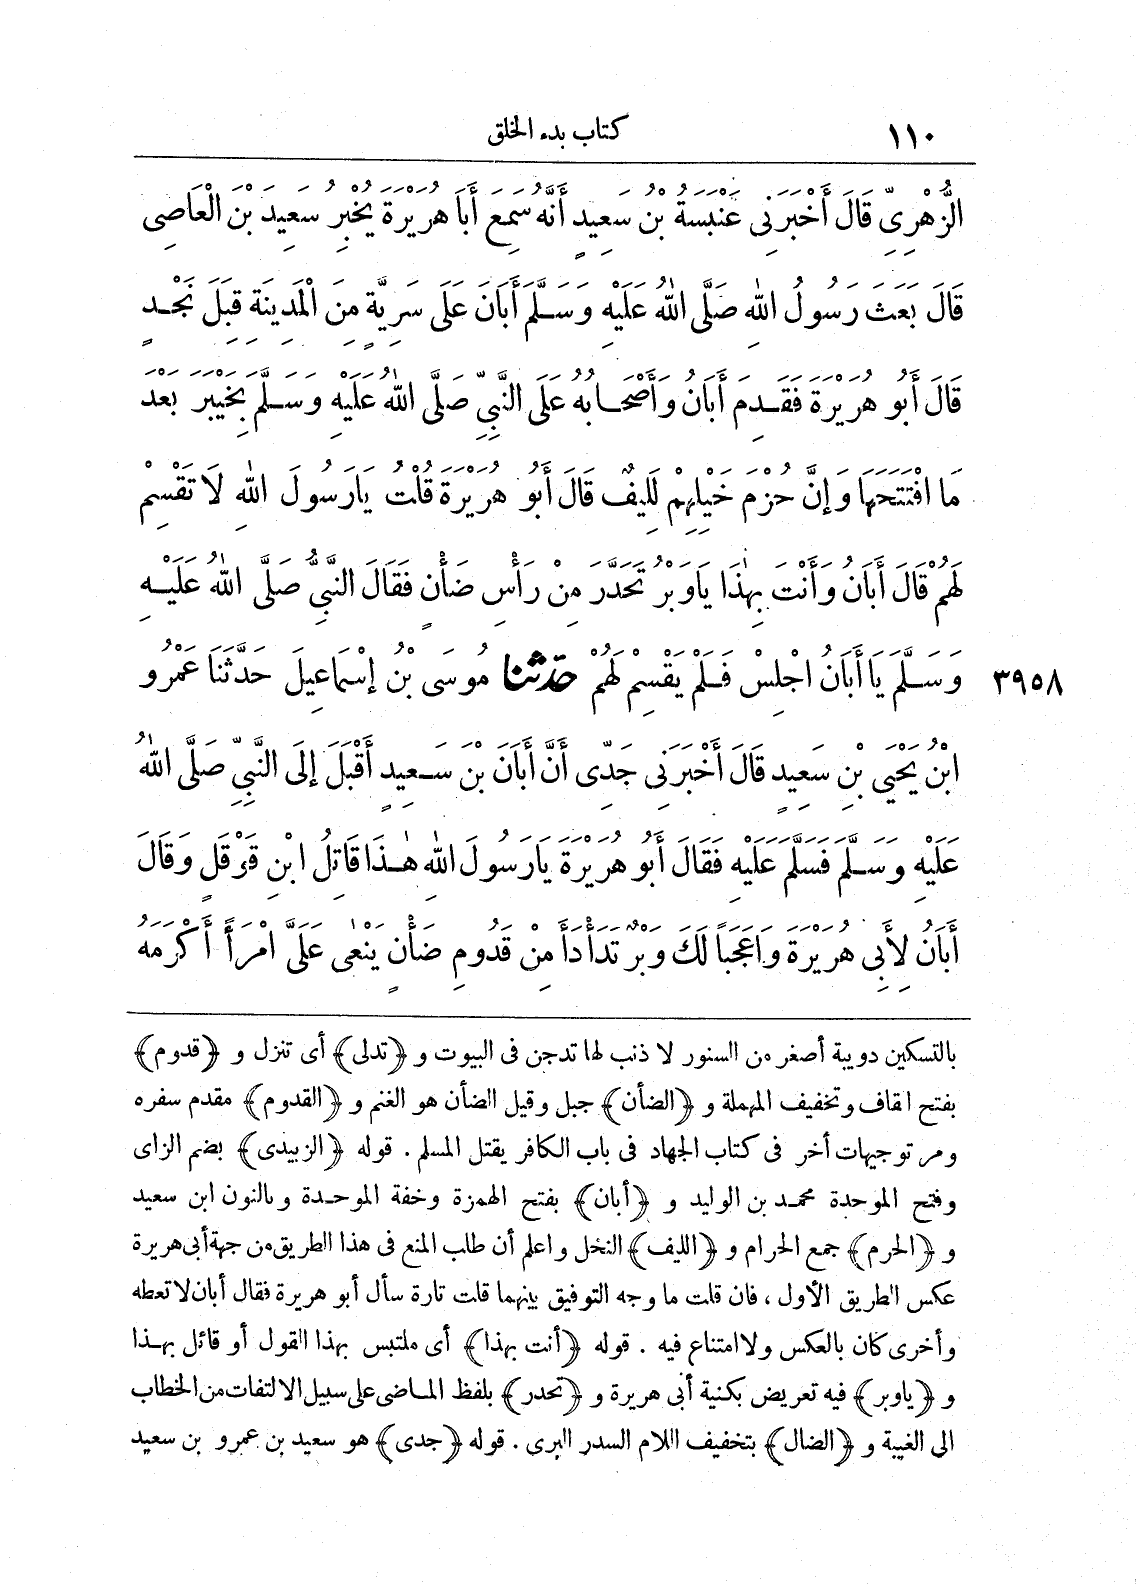 ١١٠ كتاب بدء الخلق
الزُّهْرِىِّ قَالَ أَخْبَرَنِى عَنْبَسَةُ بْنُ سَعِيدٍ أَنَّهُ سَمِعَ أَبَا هُرَيْرَةَ يُخْبِرُ سَعِيدَ بْنَ الْعَاصِى
قَالَ بَعَثَ رَسُولُ اللهِ صَلَّى اللهُ عَلَيْهِ وَسَلَّمَ أَبَانَ عَلَى سَرِيَّةٍ مِنَ الْمَدِينَةِ قِبَلَ نَجْدٍ
قَالَ أَبُو هُرَيْرَةَ فَقَدِمَ أَبَانُ وَأَصْحَابُهُ عَلَى النَّبِيِّ صَلَّى اللهُ عَلَيْهِ وَسَلَّمَ بِخَيْبَرَ بَعْدَ
مَا افْتَتَحَهَا وَإِنَّ حُزْمَ خَيْلِهِمْ لَلِيفٌ قَالَ أَبُو هُرَيْرَةَ قُلْتُ يَارَسُولَ اللهِ لَا تَقْسِمْ
لَهُمْ قَالَ أَبَانُ وَأَنْتَ بِهٰذَا يَاوَبْرُ تَحَدَّرَ مِنْ رَأْسِ ضَأْنٍ فَقَالَ النَّبِيُّ صَلَّى اللهُ عَلَيْهِ
وَسَلَّمَ يَا أَبَانُ اجْلِسْ فَلَمْ يَقْسِمْ لَهُمْ حَدَّثَنَا مُوسَى بْنُ إِسْمَاعِيلَ حَدَّثَنَا عَمْرُو
٣٩٥٨
ابْنُ يَحْيَى بْنِ سَعِيدٍ قَالَ أَخْبَرَنِى جَدِّى أَنَّ أَبَانَ بْنَ سَعِيدٍ أَقْبَلَ إِلَى النَّبِيِّ صَلَّى اللهُ
عَلَيْهِ وَسَلَّمَ فَسَلَّمَ عَلَيْهِ فَقَالَ أَبُو هُرَيْرَةَ يَارَسُولَ اللهِ هٰذَا قَاتِلُ ابْنِ قَوْقَلٍ وَقَالَ
أَبَانُ لِأَبِى هُرَيْرَةَ وَاعَجَبًا لَكَ وَبْرٌ تَدَأْدَأَ مِنْ قَدُومِ ضَأْنٍ يَنْعَى عَلَىَّ امْرَأً أَكْرَمَهُ
بالتسكين دويبة أصغر من السنور لا ذنب لها تدجن فى البيوت و ﴿تدلى﴾ أى تنزل و ﴿قدوم﴾
بفتح القاف وتخفيف المهملة و ﴿الضأن﴾ جبل وقيل الضأن هو الغنم و ﴿القدوم﴾ مقدم سفره
ومر توجيهات أخر فى كتاب الجهاد فى باب الكافر يقتل المسلم . قوله ﴿الزبيدى﴾ بضم الزاى
وفتح الموحدة محمد بن الوليد و ﴿أبان﴾ بفتح الهمزة وخفة الموحدة وبالنون ابن سعيد
و ﴿الحرم﴾ جمع الحرام و ﴿الليف﴾ النخل واعلم أن طلب المنع فى هذا الطريق من جهة أبى هريرة
عكس الطريق الأول ، فان قلت ما وجه التوفيق بينهما قلت تارة سأل أبو هريرة فقال أبان لا تعطه
وأخرى كان بالعكس ولا امتناع فيه . قوله ﴿أنت بهذا﴾ أى ملتبس بهذا القول أو قائل بهذا
و ﴿ياوبر﴾ فيه تعريض بكنية أبى هريرة و ﴿تحدر﴾ بلفظ الماضى على سبيل الالتفات من الخطاب
الى الغيبة و ﴿الضال﴾ بتخفيف اللام السدر البرى . قوله ﴿جدى﴾ هو سعيد بن عمرو بن سعيد